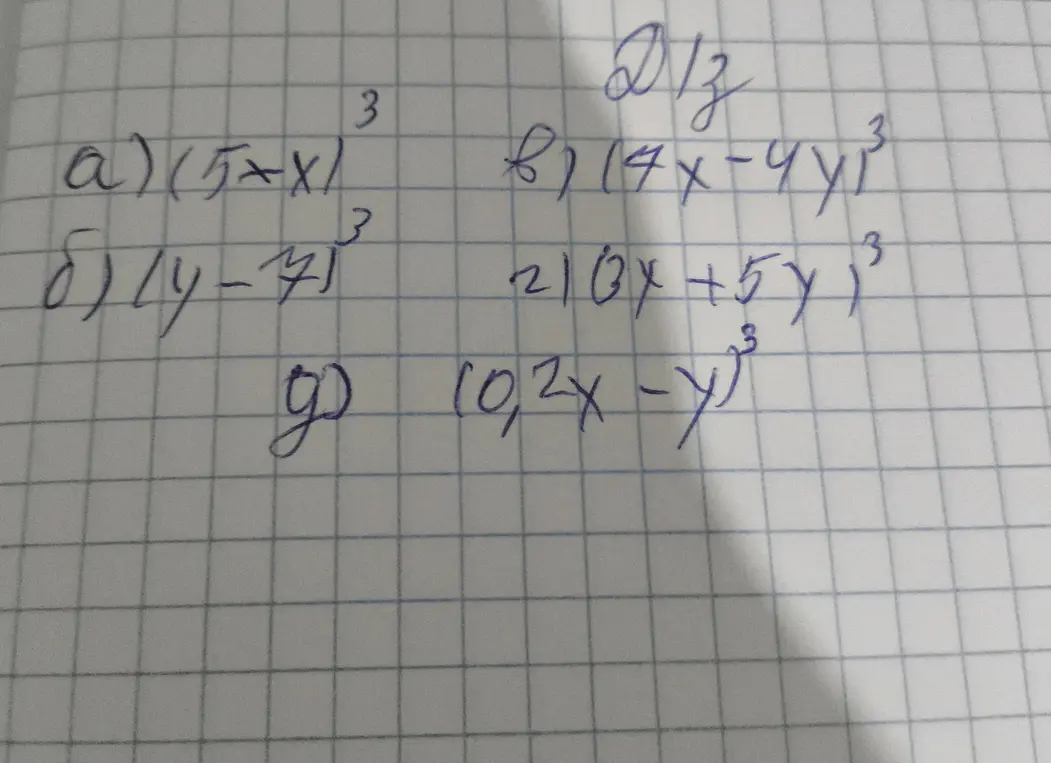 Д/з
а) (5-x)³ в) (7x-4y)³
б) (y-7)³ г) (3x+5y)³
д) (0,2x-y)³